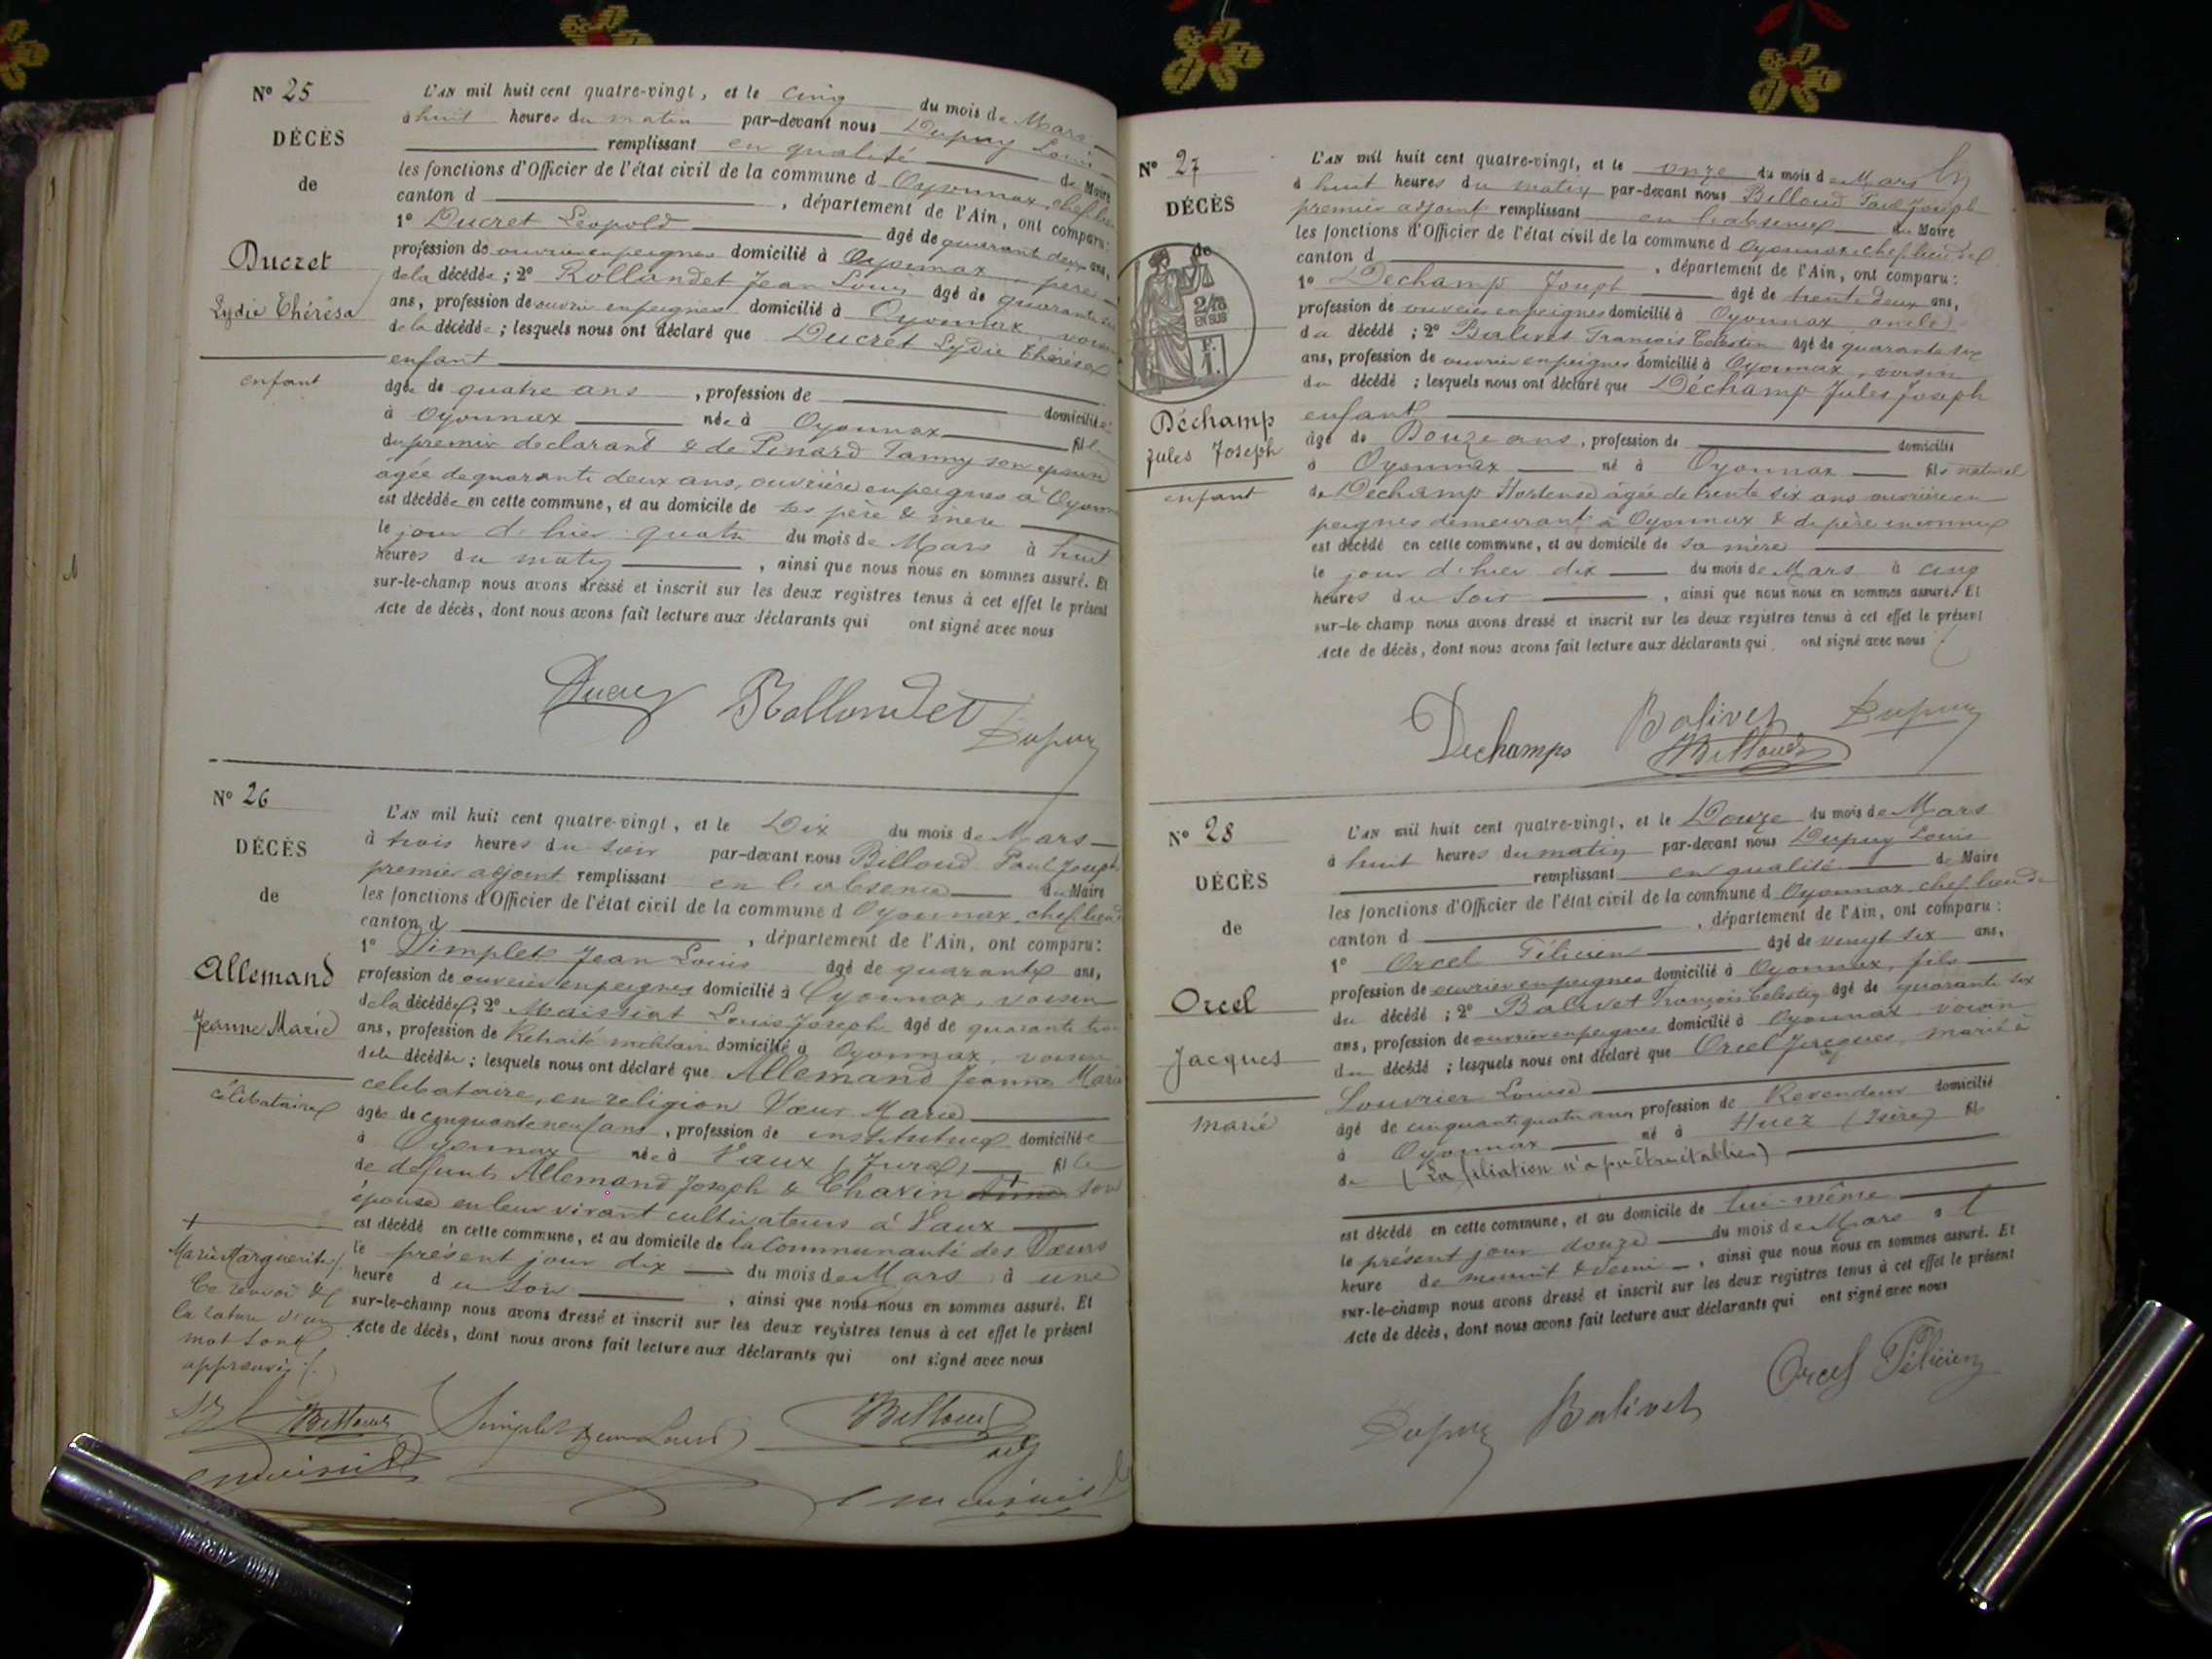 N° 25
DÉCÈS
de
Ducret
Lydie Thérésa
enfant
L'AN mil huit cent quatre-vingt, et le cinq du mois de Mars
à huit heures du matin par-devant nous Dupuy Louis
remplissant en qualité de Maire
les fonctions d'Officier de l'état civil de la commune d Oyonnax, chef lieu
canton d , département de l'Ain, ont comparu:
1° Ducret Léopold âgé de quarante deux ans,
profession de ouvrier en peignes domicilié à Oyonnax père
de la décédée; 2° Rollandet Jean Louis âgé de quarante
ans, profession de ouvrier en peignes domicilié à Oyonnax, voisin
de la décédée; lesquels nous ont déclaré que Ducret Lydie Thérésa
enfant
âgée de quatre ans, profession de domiciliée
à Oyonnax née à Oyonnax fille
du premier déclarant & de Pinard Fanny son épouse
âgée de quarante deux ans, ouvrière en peignes à Oyonnax
est décédée en cette commune, et au domicile de ses père & mère
le jour d'hier quatre du mois de Mars à huit
heures du matin, ainsi que nous nous en sommes assuré. Et
sur-le-champ nous avons dressé et inscrit sur les deux registres tenus à cet effet le présent
Acte de décès, dont nous avons fait lecture aux déclarants qui ont signé avec nous
Ducret Rollandet
Dupuy
N° 26
DÉCÈS
de
Allemand
Jeanne Marie
célibataire
L'AN mil huit cent quatre-vingt, et le Dix du mois de Mars
à trois heures du soir par-devant nous Billoud Paul Joseph
premier adjoint remplissant en l'absence du Maire
les fonctions d'Officier de l'état civil de la commune d Oyonnax, chef lieu de
canton d , département de l'Ain, ont comparu:
1° Simplet Jean Louis âgé de quarante ans,
profession de ouvrier en peignes domicilié à Oyonnax, voisin
de la décédée; 2° Maissiat Louis Joseph âgé de quarante trois
ans, profession de Retraité militaire domicilié à Oyonnax, voisin
de la décédée; lesquels nous ont déclaré que Allemand Jeanne Marie
célibataire, en religion Sœur Marie
âgée de cinquante neuf ans, profession de institutrice domiciliée
à Oyonnax née à Vaux (Jura) fille
de défunts Allemand Joseph & Chavin son
épouse en leur vivant cultivateurs à Vaux
est décédé en cette commune, et au domicile de la Communauté des Sœurs
le présent jour dix du mois de Mars à une
heure du soir, ainsi que nous nous en sommes assuré. Et
sur-le-champ nous avons dressé et inscrit sur les deux registres tenus à cet effet le présent
Acte de décès, dont nous avons fait lecture aux déclarants qui ont signé avec nous
Marie Marguerite/.
Ce renvoi &
la rature d'un
mot sont
approuvés/.
Billoud Simplet Jean Louis Billoud
adj
N° 27
DÉCÈS
de
2/10
EN SUS
Déchamp
Jules Joseph
enfant
L'AN mil huit cent quatre-vingt, et le onze du mois de Mars
à huit heures du matin par-devant nous Billoud Paul Joseph
premier adjoint remplissant en l'absence du Maire
les fonctions d'Officier de l'état civil de la commune d Oyonnax chef lieu de
canton d , département de l'Ain, ont comparu:
1° Dechamp Joseph âgé de trente deux ans,
profession de ouvrier en peignes domicilié à Oyonnax oncle
du décédé; 2° Balivet François Célestin âgé de quarante six
ans, profession de ouvrier en peignes domicilié à Oyonnax, voisin
du décédé; lesquels nous ont déclaré que Déchamp Jules Joseph
enfant
âgé de Douze ans, profession de domicilié
à Oyonnax né à Oyonnax fils naturel
de Dechamp Hortense âgée de trente six ans ouvrière en
peignes demeurant à Oyonnax & de père inconnu
est décédé en cette commune, et au domicile de sa mère
le jour d'hier dix du mois de Mars à cinq
heures du soir, ainsi que nous nous en sommes assuré. Et
sur-le-champ nous avons dressé et inscrit sur les deux registres tenus à cet effet le présent
Acte de décès, dont nous avons fait lecture aux déclarants qui ont signé avec nous
Dechamps Balivet Dupuy
Billoud
N° 28
DÉCÈS
de
Orcel
Jacques
marié
L'AN mil huit cent quatre-vingt, et le Douze du mois de Mars
à huit heures du matin par-devant nous Dupuy Louis
remplissant en qualité de Maire
les fonctions d'Officier de l'état civil de la commune d Oyonnax, chef lieu de
canton d , département de l'Ain, ont comparu:
1° Orcel Félicien âgé de vingt six ans,
profession de ouvrier en peignes domicilié à Oyonnax, fils
du décédé; 2° Balivet François Célestin âgé de quarante six
ans, profession de ouvrier en peignes domicilié à Oyonnax voisin
du décédé; lesquels nous ont déclaré que Orcel Jacques, marié à
Louvrier Louise
âgé de cinquante quatre ans, profession de Revendeur domicilié
à Oyonnax né à Huez (Isère) fils
de (La filiation n'a pu être établie)
est décédé en cette commune, et au domicile de lui-même
le présent jour douze du mois de Mars à
heure de minuit & demi, ainsi que nous nous en sommes assuré. Et
sur-le-champ nous avons dressé et inscrit sur les deux registres tenus à cet effet le présent
Acte de décès, dont nous avons fait lecture aux déclarants qui ont signé avec nous
Dupuy Balivet Orcel Félicien